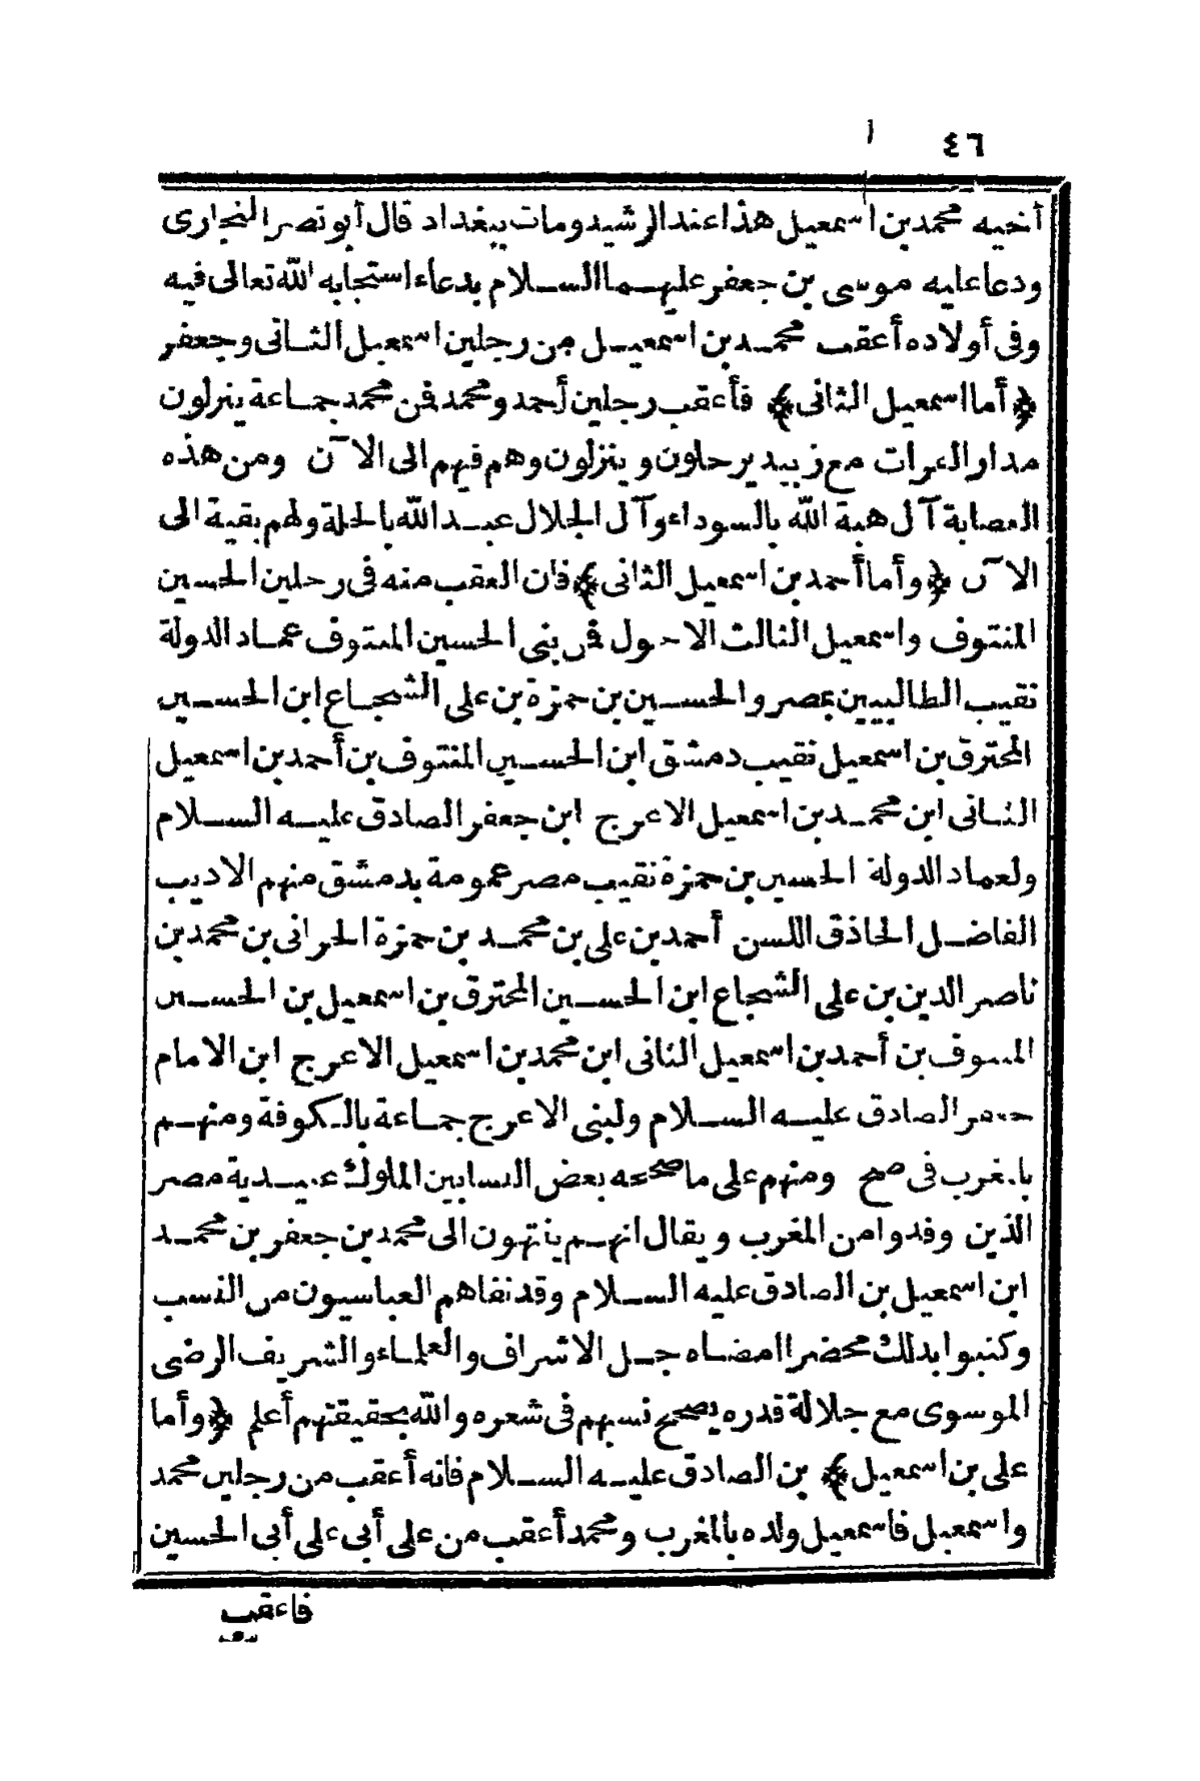 ٤٦
أخيه محمد بن اسمعيل هذا عند الرشيد ومات ببغداد قال أبو نصر النجارى
ودعا عليه موسى بن جعفر عليهما السلام بدعاء استجابه الله تعالى فيه
وفى أولاده أعقب محمد بن اسمعيل من رجلين اسمعيل الثانى وجعفر
﴿أما اسمعيل الثانى﴾ فأعقب رجلين أحمد ومحمد فمن محمد جماعة ينزلون
مدار العرات مع زبيد يرحلون وينزلون وهم فيهم الى الآن ومن هذه
العصابة آل هبة الله بالسوداء وآل الجلال عبد الله بالحلة ولهم بقية الى
الآن ﴿وأما أحمد بن اسمعيل الثانى﴾ فان العقب منه فى رجلين الحسين
المنتوف واسمعيل الثالث الاحول فمن بنى الحسين المنتوف عماد الدولة
نقيب الطالبيين بمصر والحسين بن حمزة بن على الشجاع ابن الحسين
المحترق بن اسمعيل نقيب دمشق ابن الحسين المنتوف بن أحمد بن اسمعيل
الثانى ابن محمد بن اسمعيل الاعرج ابن جعفر الصادق عليه السلام
ولعماد الدولة الحسين بن حمزة نقيب مصر عمومة بدمشق منهم الاديب
الفاضل الحاذق اللسن أحمد بن على بن محمد بن حمزة الحرانى بن محمد بن
ناصر الدين بن على الشجاع ابن الحسين المحترق بن اسمعيل بن الحسين
المنتوف بن أحمد بن اسمعيل الثانى ابن محمد بن اسمعيل الاعرج ابن الامام
جعفر الصادق عليه السلام ولبنى الاعرج جماعة بالكوفة ومنهم
بالمغرب فى صح ومنهم على ما صححه بعض النسابين الملوك عبيدية مصر
الذين وفدوا من المغرب ويقال انهم ينتهون الى محمد بن جعفر بن محمد
ابن اسمعيل بن الصادق عليه السلام وقد نفاهم العباسيون من النسب
وكتبوا بذلك محضرا امضاه جل الاشراف والعلماء والشريف الرضى
الموسوى مع جلالة قدره يصحح نسبهم فى شعره والله بحقيقتهم أعلم ﴿وأما
على بن اسمعيل﴾ بن الصادق عليه السلام فانه أعقب من رجلين محمد
واسمعيل فاسمعيل ولده بالمغرب ومحمد أعقب من على أبى على أبى الحسين
فاعقب